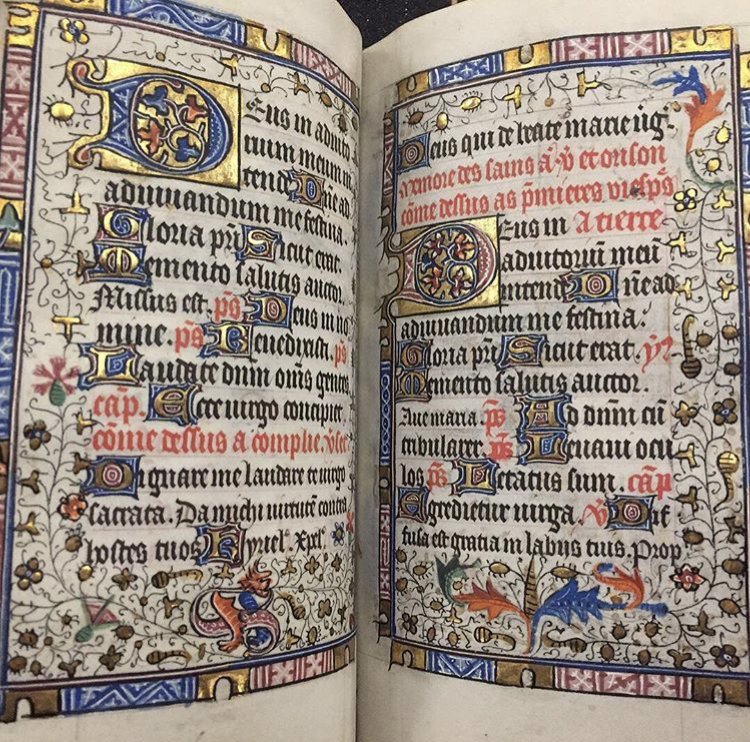 Deus in adiuto
rium meum in
tende Dne ad
adiuuandum me festina.
Gloria pri Sicut erat.
Memento salutis auctor.
Missus est. ps Deus in no
mine. ps Benedixisti. ps
Laudate dnm oms gentes
cap. Ecce uirgo concipiet.
cõme dessus a complie. vset
Dignare me laudare te uirgo
sacrata. Da michi uirtutẽ contra
hostes tuos Kyriel. Xpel.
Deus qui de beate marie uig.
memore des sains ã. v et orison
cõme dessus as pmieres vesps
Deus in A tierce
adiutoriũ meũ
intende Dñe ad
adiuuandum me festina.
Gloria pri Sicut erat. yp.
Memento salutis auctor.
Aue maria. ps Ad dnm cũ
tribularer. ps Leuaui ocu
los ps Letatus sum. cap
Egredietur uirga. v Dif
fusa est gratia in labijs tuis. Prop